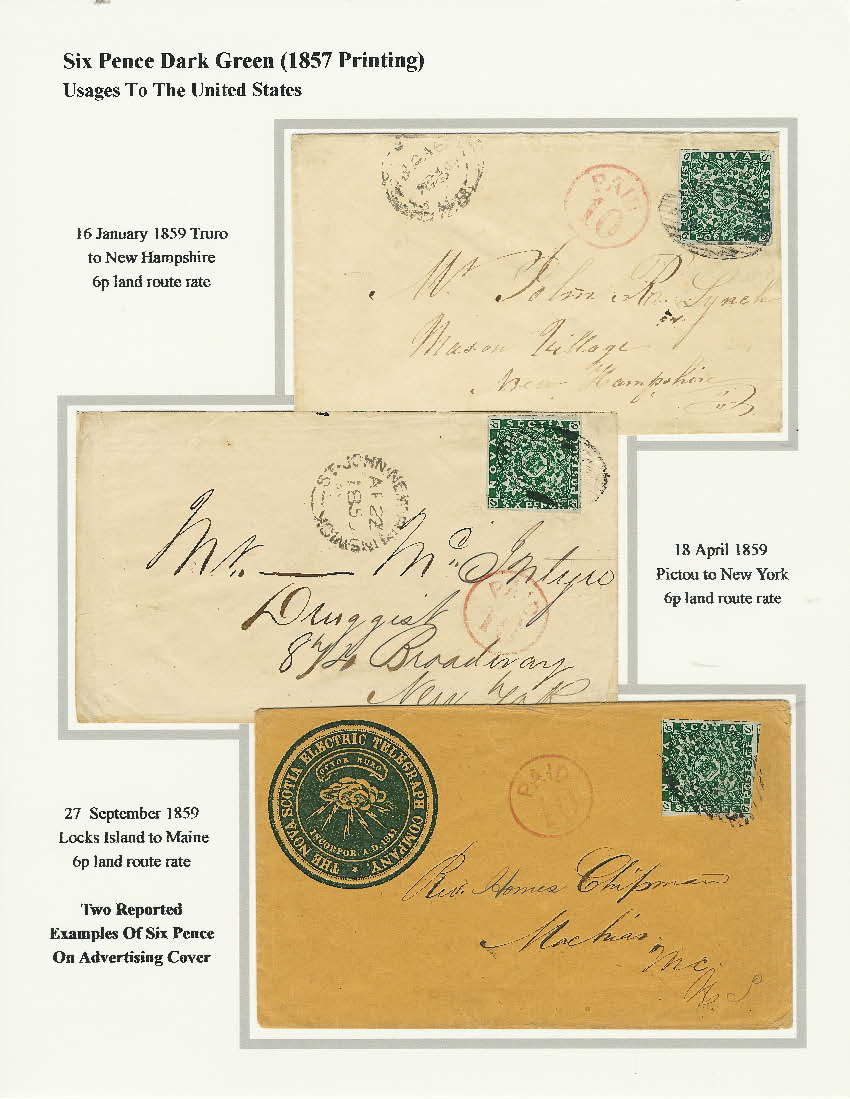 Six Pence Dark Green (1857 Printing)
Usages To The United States
16 January 1859 Truro
to New Hampshire
6p land route rate
PAID
10
NOVA
Mr. John R. Lynch
Mason Village
New Hampshire
18 April 1859
Pictou to New York
6p land route rate
ST. JOHN NEW BRUNSWICK
AP 22
185
SCOTIA
SIX PENCE
Mr. — McIntyre
Druggist
874 Broadway
New York
PAID
27 September 1859
Locks Island to Maine
6p land route rate
Two Reported
Examples Of Six Pence
On Advertising Cover
THE NOVA SCOTIA ELECTRIC TELEGRAPH COMPANY.
INCORPOR. A.D. 1851
PAID
10
SCOTIA
Rev. Homes Chipman
Machias
Me.
U S